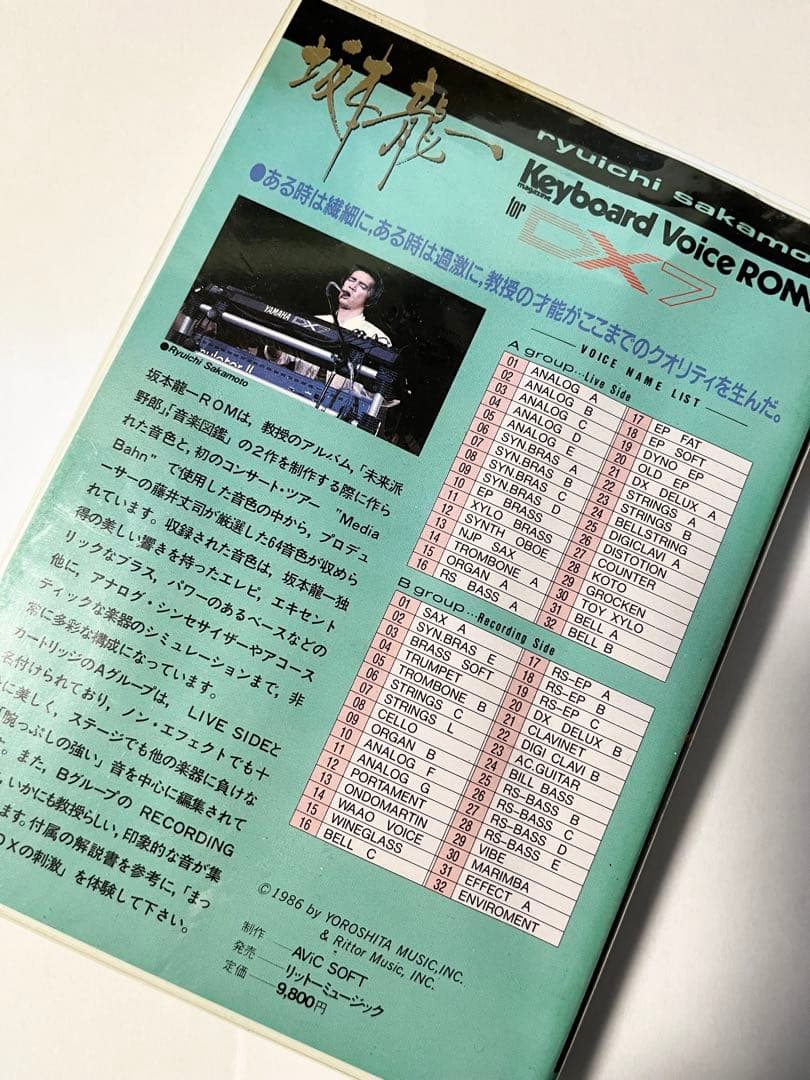 坂本龍一
ryuichi sakamo
Keyboard magazine Voice ROM
for DX7
●ある時は繊細に,ある時は過激に,教授の才能がここまでのクオリティを生んだ。
YAMAHA DX7
●Ryuichi Sakamoto
坂本龍一ROMは，教授のアルバム，「未来派
野郎」，「音楽図鑑」の2作を制作する際に作ら
れた音色と，初のコンサート・ツアー "Media
Bahn" で使用した音色の中から，プロデュ
ーサーの藤井丈司が厳選した64音色が収めら
れています。収録された音色は，坂本龍一独
得の美しい響きを持ったエレピ，エキセント
リックなブラス，パワーのあるベースなどの
他に，アナログ・シンセサイザーやアコース
ティックな楽器のシミュレーションまで，非
常に多彩な構成になっています。
カートリッジのAグループは， LIVE SIDEと
名付けられており，ノン・エフェクトでも十
に美しく，ステージでも他の楽器に負けな
「腕っぷしの強い」音を中心に編集されて
。また，Bグループの RECORDING
，いかにも教授らしい，印象的な音が集
ます。付属の解説書を参考に，「まっ
DXの刺激」を体験して下さい。
VOICE NAME LIST
A group…Live Side
01 ANALOG A
02 ANALOG B
03 ANALOG C
04 ANALOG D
05 ANALOG E
06 SYN.BRAS A
07 SYN.BRAS B
08 SYN.BRAS C
09 SYN.BRAS D
10 EP BRASS
11 XYLO BRASS
12 SYNTH OBOE
13 NJP SAX
14 TROMBONE A
15 ORGAN A
16 RS BASS A
17 EP FAT
18 EP SOFT
19 DYNO EP
20 OLD EP
21 DX DELUX A
22 STRINGS A
23 STRINGS B
24 BELLSTRING
25 DIGICLAVI A
26 DISTOTION
27 COUNTER
28 KOTO
29 GROCKEN
30 TOY XYLO
31 BELL A
32 BELL B
B group…Recording Side
01 SAX A
02 SYN.BRAS E
03 BRASS SOFT
04 TRUMPET
05 TROMBONE B
06 STRINGS C
07 STRINGS L
08 CELLO
09 ORGAN B
10 ANALOG F
11 ANALOG G
12 PORTAMENT
13 ONDOMARTIN
14 WAAO VOICE
15 WINEGLASS
16 BELL C
17 RS-EP A
18 RS-EP B
19 RS-EP C
20 DX DELUX B
21 CLAVINET
22 DIGI CLAVI B
23 AC.GUITAR
24 BILL BASS
25 RS-BASS B
26 RS-BASS C
27 RS-BASS D
28 RS-BASS E
29 VIBE
30 MARIMBA
31 EFFECT A
32 ENVIROMENT
©1986 by YOROSHITA MUSIC,INC.
& Rittor Music, INC.
制作 — AViC SOFT
発売 — リットーミュージック
定価 — 9,800円